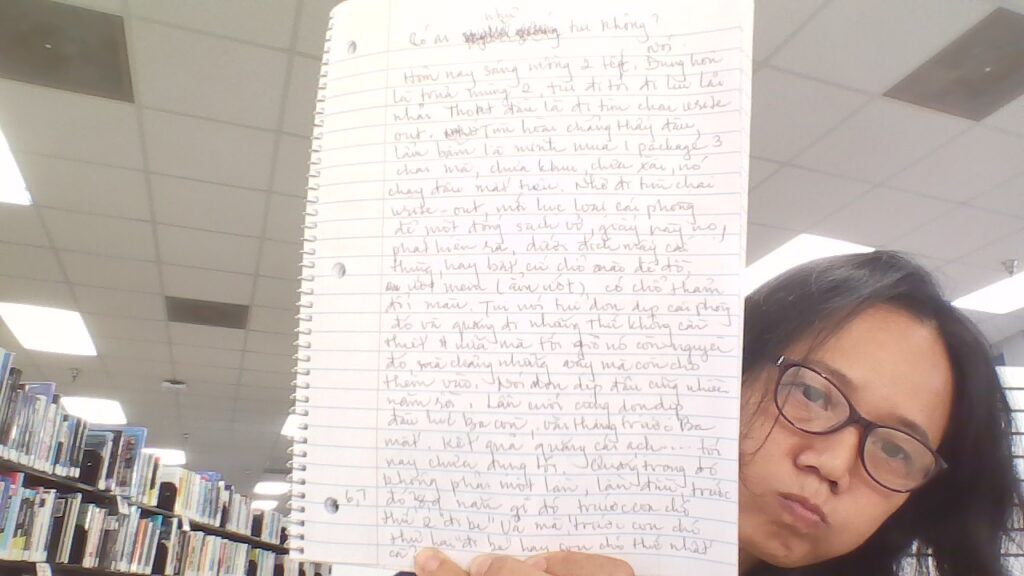 như
Có ai tui không?
Hôm nay sáng nắng 2 tiếp. Đúng hơn nói
là trưa nung 2, tui đi tới đi lui lải
nhải Thoát đầu là đi tìm chai write
out. Tìm hoài chẳng thấy đâu,
lằm bằm là mình mua 1 package 3
chai mà, chưa khui, chưa xài, nó
chạy đâu mất tiêu. Nhờ đi tìm chai
write-out, mà lục loại cái phòng
để một đống sách vở, giấy này nọ,
phát hiện ra, dưới đích mấy cái
thùng, hay bất cứ chỗ nào để đồ,
ướt mem (ẩm ướt) có chỗ thấm
đổi màu. Tui nói hư dọn dẹp cái phòng
đó và quăng đi những thứ không cần
thiết mà tới giờ nó còn nguyên
đó, mà chẳng những vậy mà còn cho
thêm vào. Nói dọn dẹp đâu cũng nhiều
năm rồi. Lần cuối cùng dọn dẹp
đâu lúc Ba còn, vài tháng trước Ba
mất. Kết quả quăng cái ạch.... tới
nay chưa đụng tới. Quan trọng đó
không phải một lần, lần thứ trước
đó 6,7 năm gì đó trước con chó
thứ 2 "đi bé" Và mà trước con chó
thứ hai "đi bé" hay con chó thứ nhất